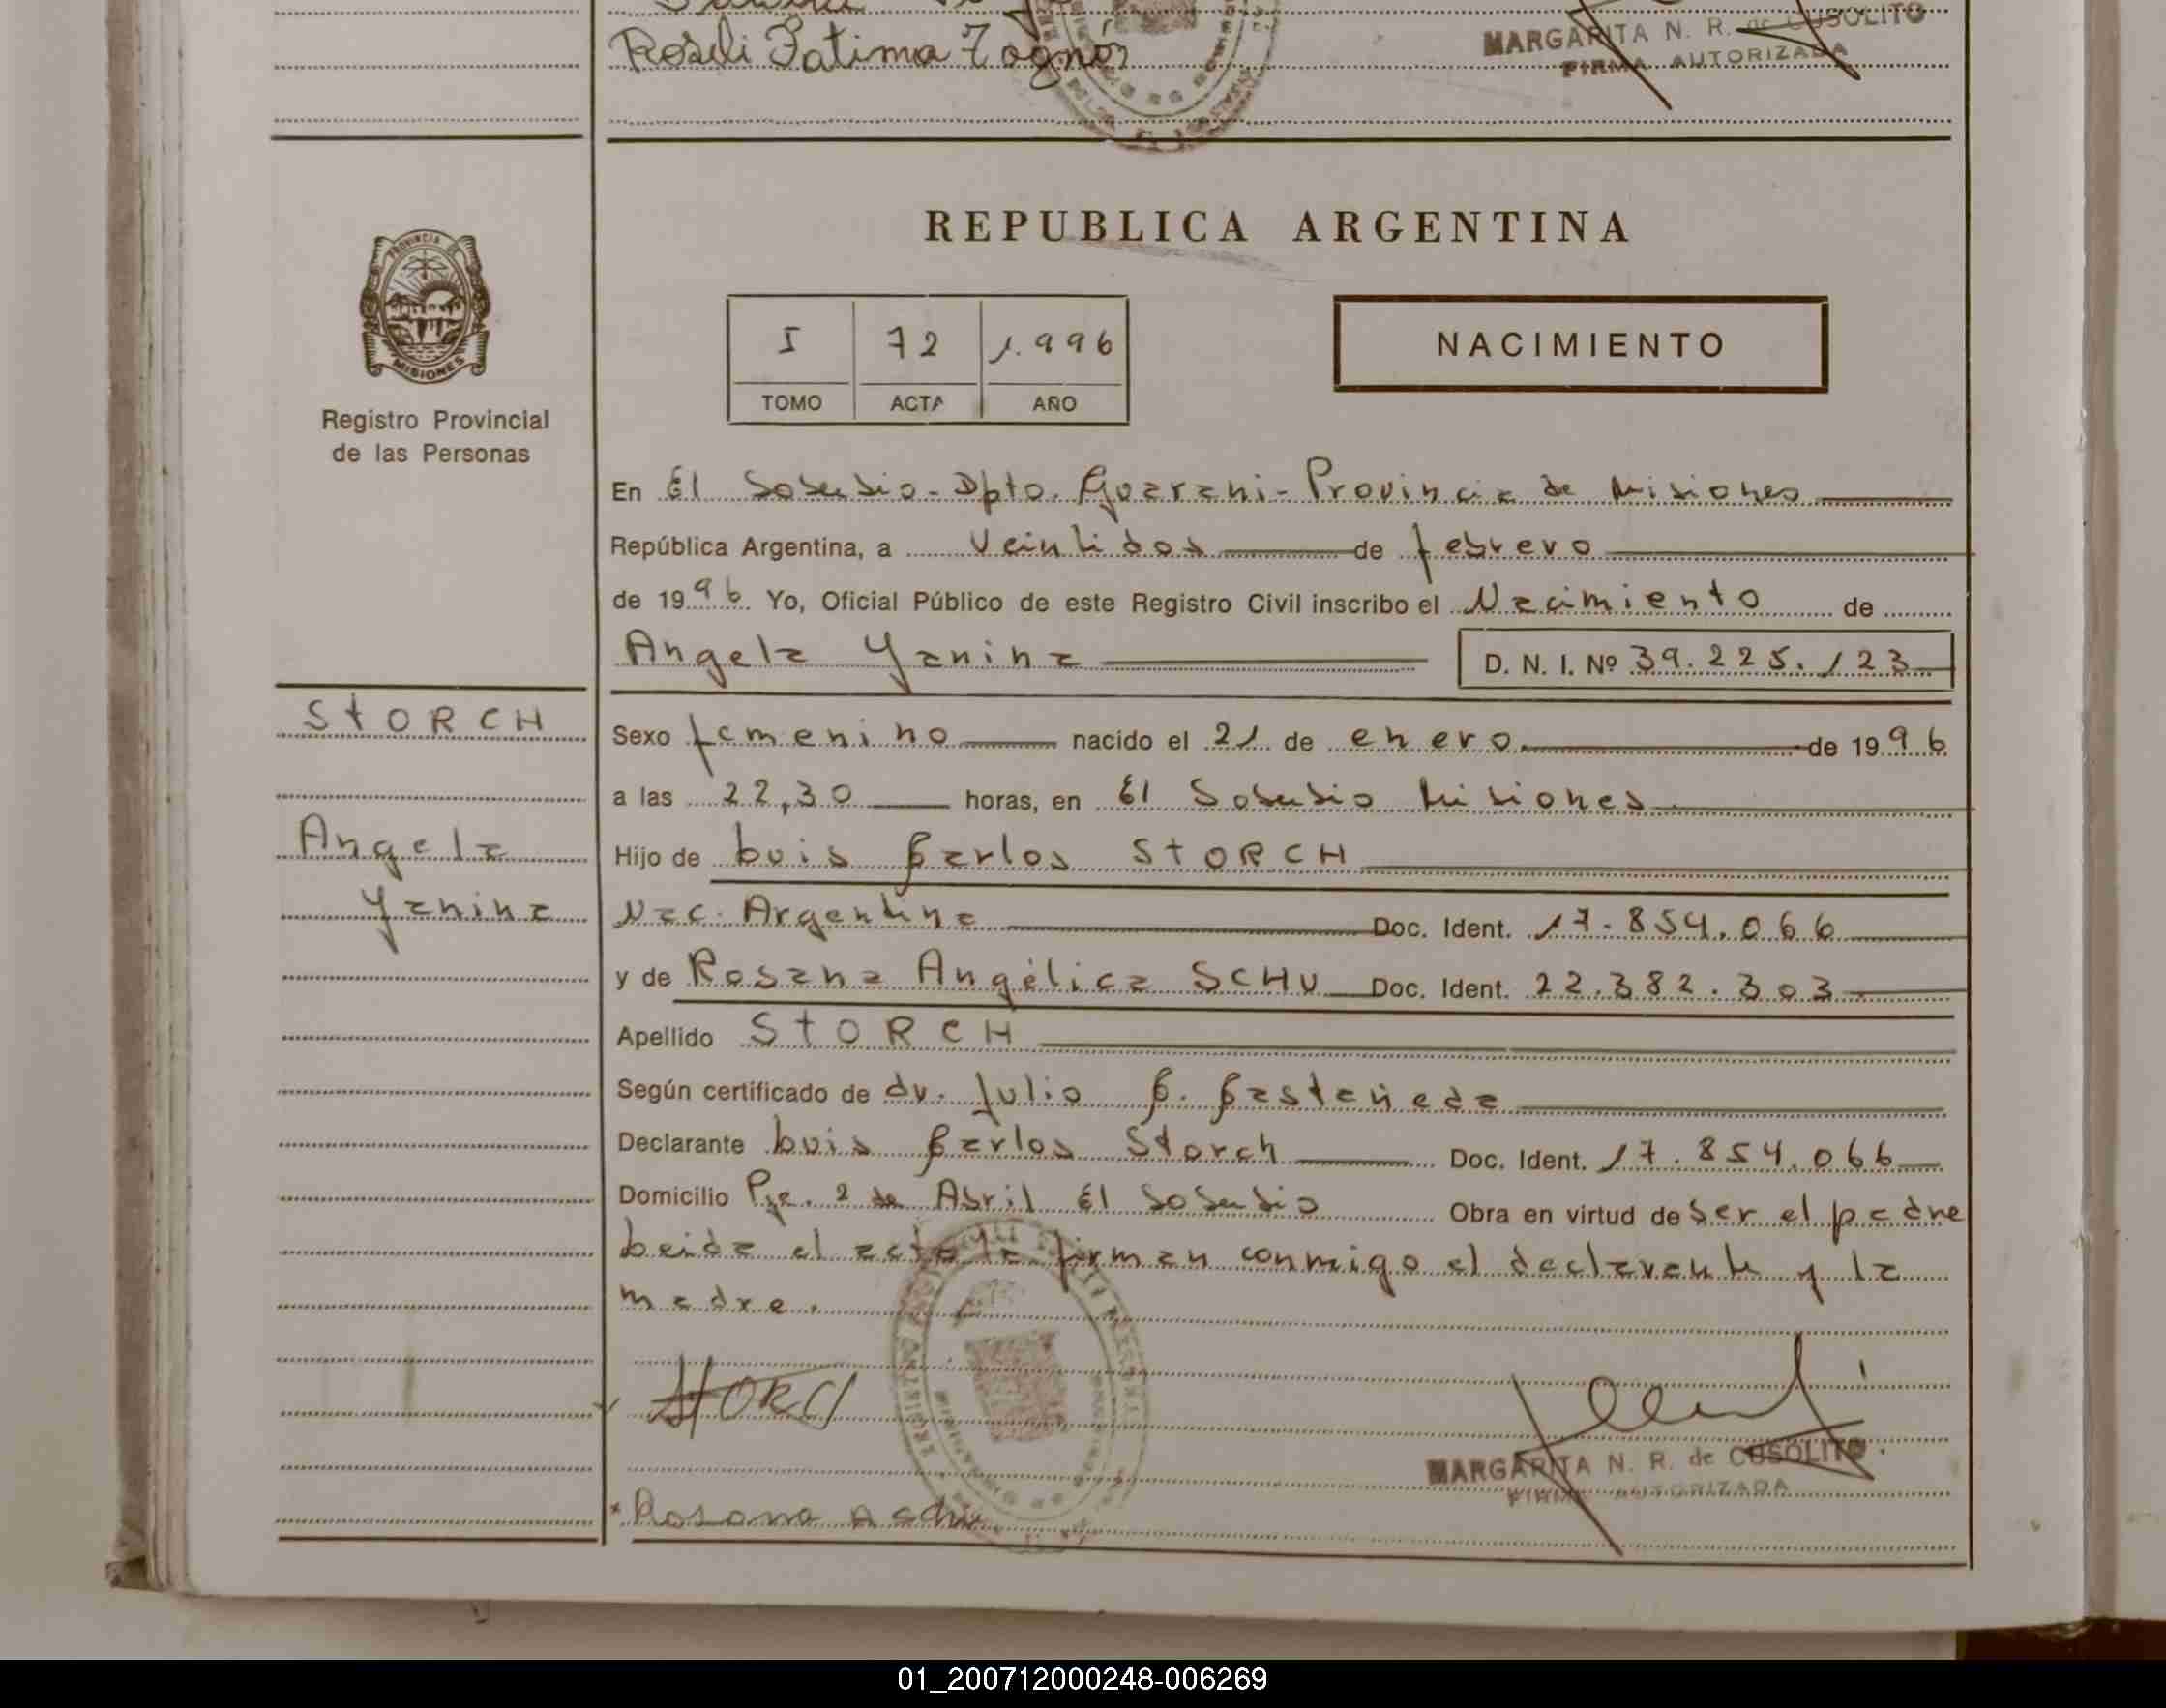 Roseli Fatima Tognon
MARGARITA N. R. de CUSOLITO
FIRMA AUTORIZADA
REPUBLICA ARGENTINA
PROVINCIA DE
MISIONES
Registro Provincial
de las Personas
I 72 1.996
TOMO ACTA AÑO
NACIMIENTO
En El Soberbio - Dpto. Guarani - Provincia de Misiones
República Argentina, a veintidos de febrero
de 1996 Yo, Oficial Público de este Registro Civil inscribo el Nacimiento de
Angela Yanina D. N. I. Nº 39.225.123
STORCH
Angela
Yanina
Sexo femenino nacido el 21 de enero de 1996
a las 22,30 horas, en El Soberbio Misiones
Hijo de Luis Carlos STORCH
Nac. Argentina Doc. Ident. 17.854.066
y de Rosana Angélica SCHU Doc. Ident. 22.382.303
Apellido STORCH
Según certificado de dr. Julio C. Castañeda
Declarante Luis Carlos Storch Doc. Ident. 17.854.066
Domicilio Pje. 2 de Abril El Soberbio Obra en virtud de ser el padre
Leida el acta la firman conmigo el declarante y la
madre.
STORCH
MARGARITA N. R. de CUSOLITO
FIRMA AUTORIZADA
Rosana A Schu
01_200712000248-006269